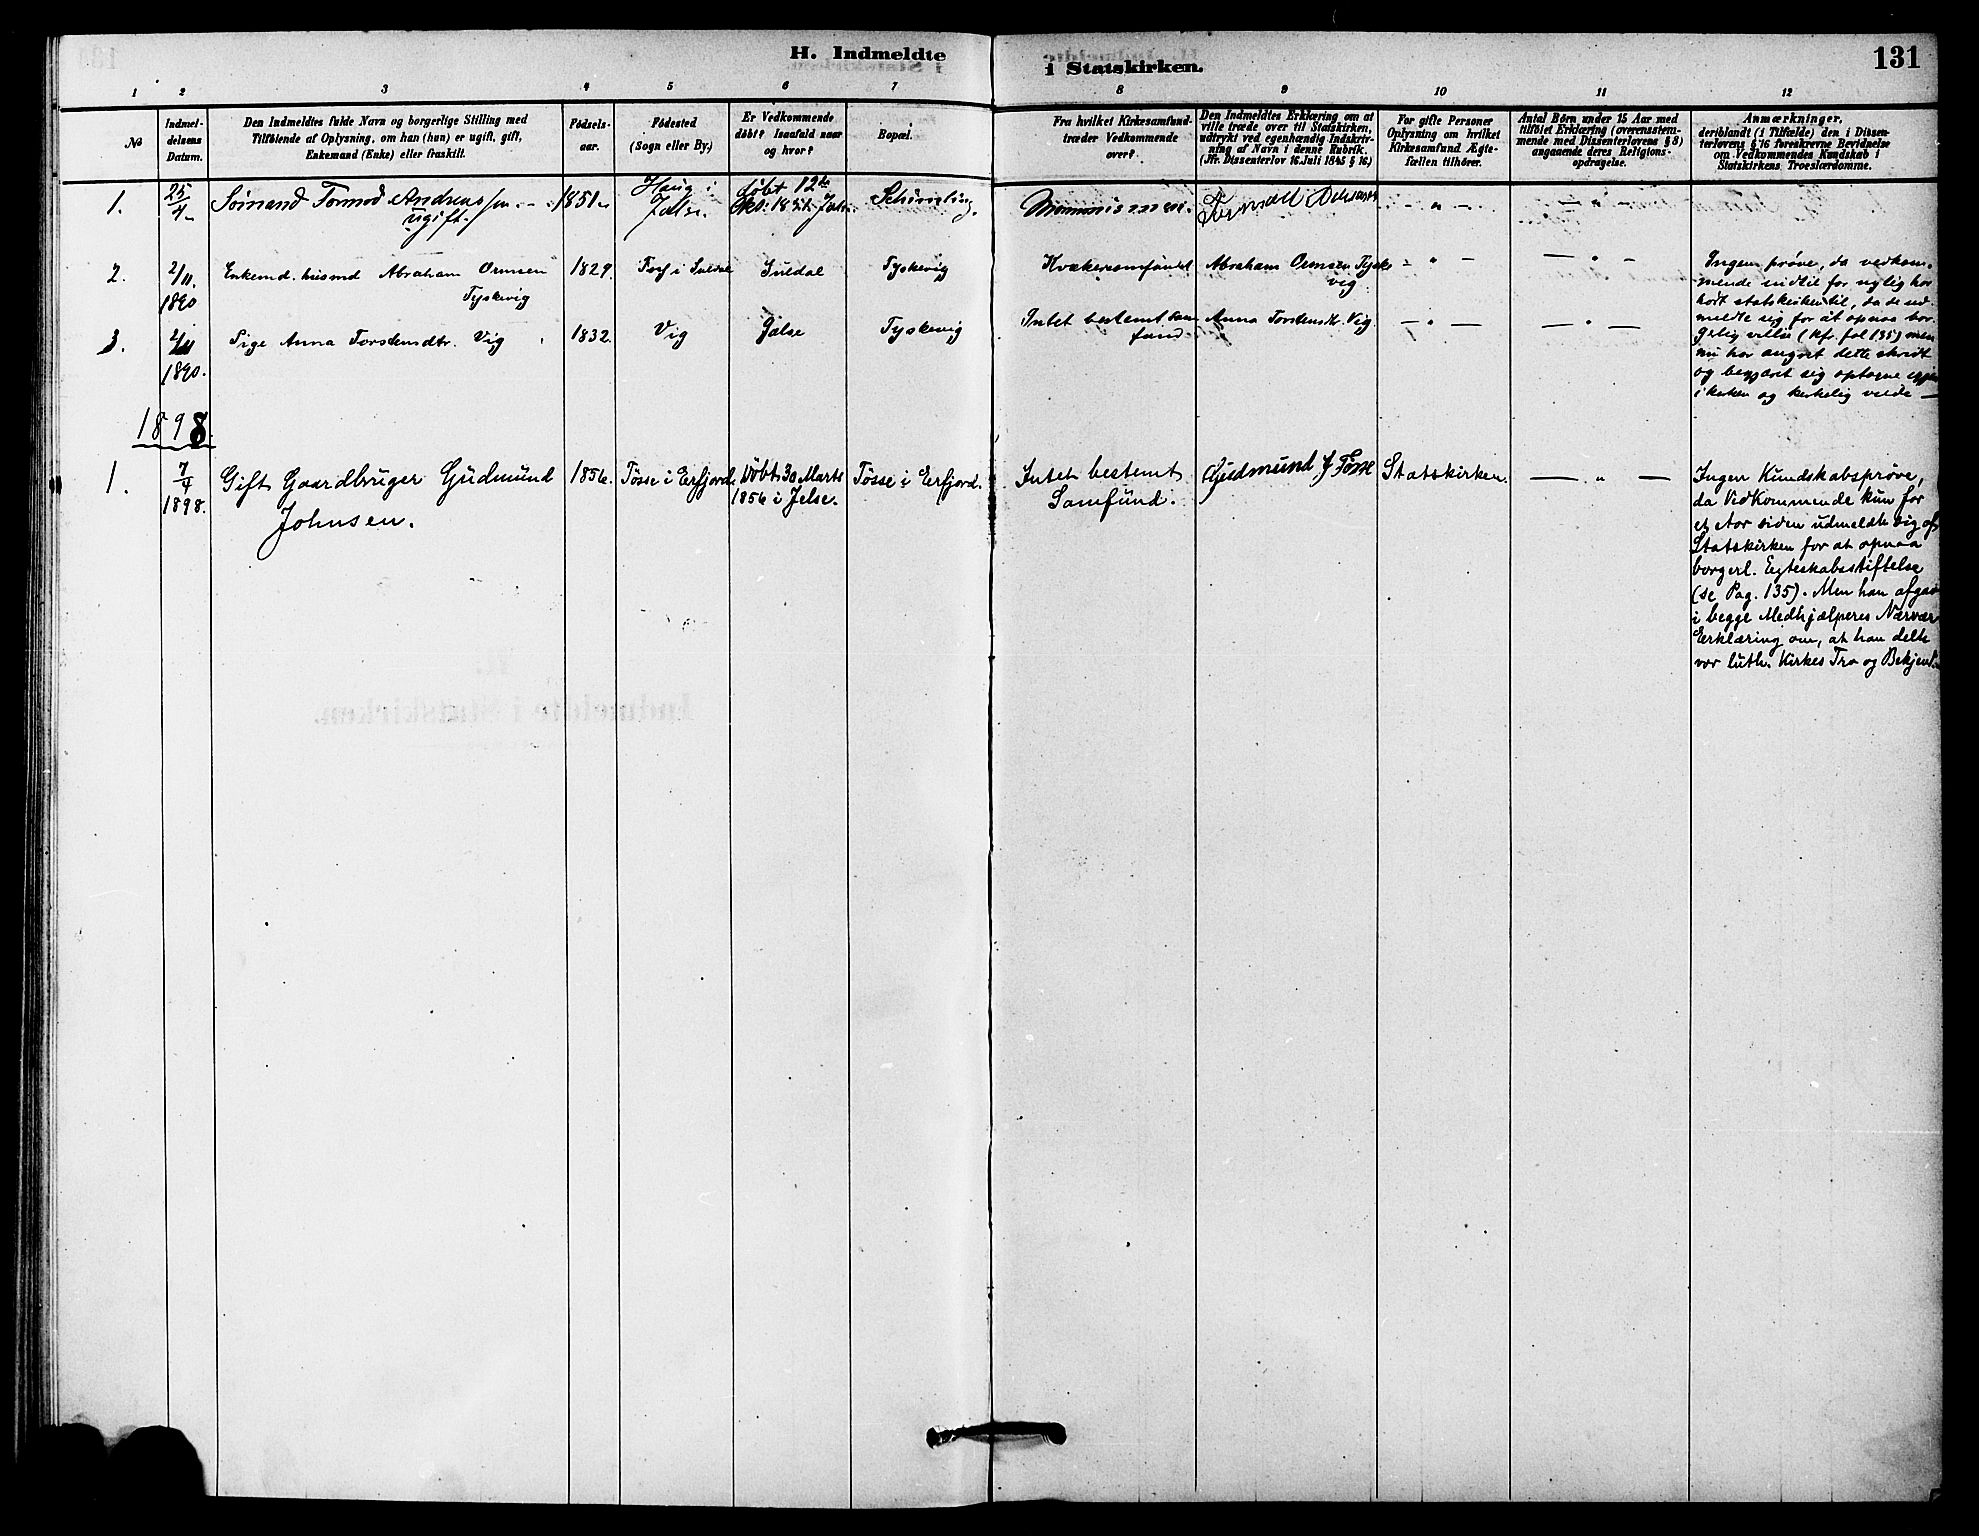 H. Indmeldte
i Statskirken.
131
1 2 3 4 5 6 7 8 9 10 11 12
No
Indmel-
delsens
Datum.
Den Indmeldtes fulde Navn og borgerlige Stilling med
Tilföiende af Oplysning, om han (hun) er ugift, gift,
Enkemand (Enke) eller fraskilt.
Födsels-
aar.
Födested
(Sogn eller By.)
Er Vedkommende
döbt? Isaafald naar
og hvor?
Bopæl.
Fra hvilket Kirkesamfund
træder Vedkommende
over?
Den Indmeldtes Erklæring om at
ville træde over til Statskirken,
udtrykt ved egenhændig Indskriv-
ning af Navn i denne Rubrik.
(Jfr. Dissenterlov 16. Juli 1845 § 16.)
For gifte Personer
Oplysning om hvilket
Kirkesamfund Ægte-
fællen tilhörer.
Antal Börn under 15 Aar med
tilföiet Erklæring (overensstem-
mende med Dissenterlovens § 8)
angaaende deres Religions-
opdragelse.
Anmærkninger,
deriblandt (i Tilfælde) den i Dissen-
terlovens § 16 foreskrevne Bevidnelse
om Vedkommendes Kundskab i
Statskirkens Troeslærdomme.
1.
25/4
Sømand Tormod Andreassen
ugift.
1851
Haug i
Jelse.
døbt 12te
1851 Jelse
Mormonismen.
Tormod
2.
2/11
1890
Enkemd. husmd Abraham Ormsen
Tyskevig
1829
i Suldal
Suldal
Tyskevig
Kvækersamfundet
Abraham Ormsen Tyske
vig
Ingen prøve, da vedkom-
mende indtil for nylig har
hørt statskirken til, da de ud-
meldte sig for at opnaa bor-
gelig vielse (kfr. fol 135) men
nu har angret dette skridt
og begjæret sig optagne igjen
i kirken og kirkelig viede —
3.
2/11
1890.
Pige Anna Torstensdtr. Vig
1832.
Vig
Jelse
Tyskevig
Intet bestemt sam
fund
Anna Torstensdtr. Vig.
1898.
1.
7/4
1898.
Gift Gaardbruger Gudmund
Johnsen.
1856.
Tøsse i Erfjord.
Døbt 30 Marts
1856 i Jelse.
Tøsse i Erfjord.
Intet bestemt
Samfund.
Gudmund J Tøsse
Statskirken.
Ingen Kundskabsprøve,
da Vedkommende kun for
et Aar siden udmeldte sig af
Statskirken for at opnaa
borgerl. Egteskabsstiftelse
(se Pag. 135). Men han afgav
i begge Medhjælperes Nærvær
Erklæring om, at han delte
vor luth. Kirkes Tro og Bekjend.